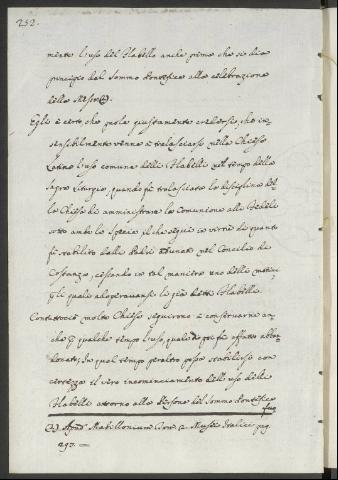 232.
mento l'uso del Flabello anche prima che si dia
principio dal Sommo Pontefice alla celebrazione
della Messa (a).
Egli è certo, che può giustamente credersi, che in-
sensibilmente venne a tralasciarsi nella Chiesa
Latina l'uso comune delli Flabelli nel tempo della
Sagra Liturgia, quando fù tralasciata la disciplina del-
la Chiesa di amministrare la Comunione alli Fedeli
sotto ambe le Specie, il che seguì in virtù di quanto
fù stabilito dalli Padri adunati nel Concilio di
Costanza, cessando in tal maniera uno delli motivi
pe' quali adoperavansi li già detti Flabelli.
Contuttociò molte Chiese seguirono a conservarne an-
che p qualche tempo l'uso, quale poi fù affatto abban-
donato; In qual tempo peraltro possa stabilirsi con
certezza il vero incominciamento dell'uso delli
Flabelli attorno alla Persona del Sommo Pontefice
fuo
(a) Apud Mabillonium Tom. 2. Musei Italici pag.
293.